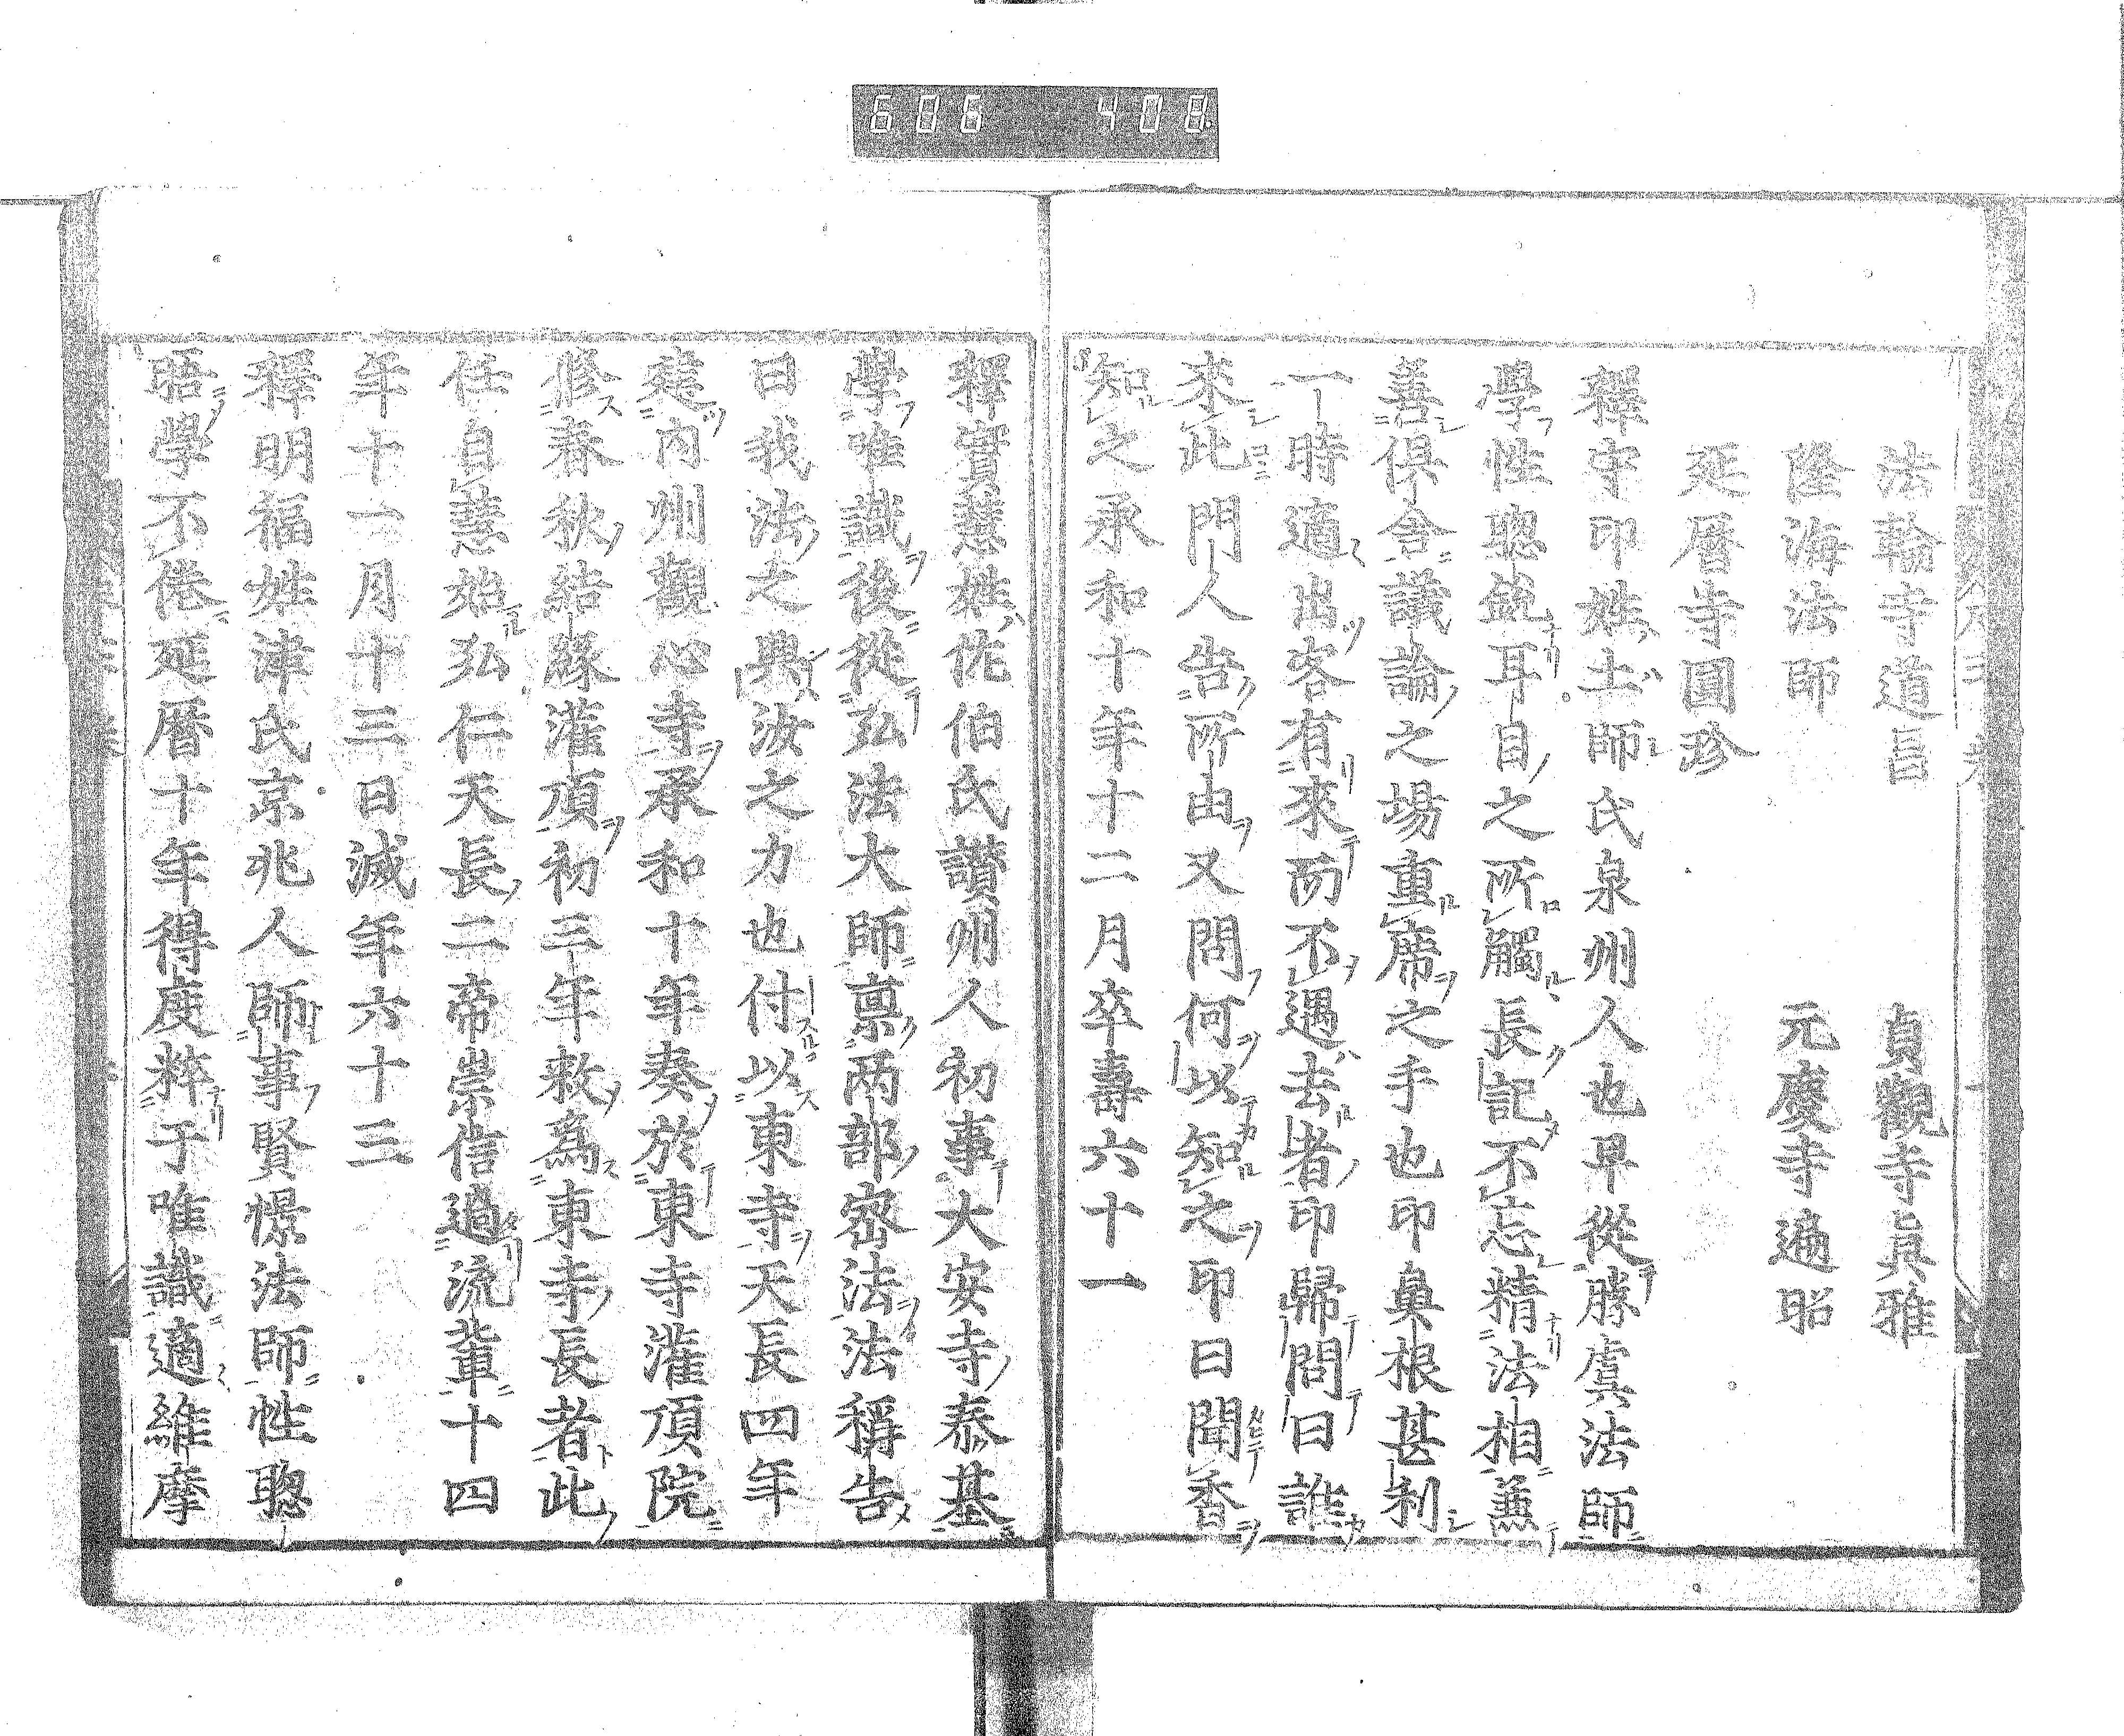 606 408
法輪寺道昌 貞觀寺眞雅
隆海法師 元慶寺遍昭
延曆寺圓珍
釋守印姓土師氏泉州人也早從勝虞法師
學性聰敏耳目之所觸長記不忘精法相兼
善俱舍議論之場重席之手也印鼻根甚利
一時適出客有來而不遇去者印歸問曰誰
來此門人告所由又問何以知之印曰聞香
知之承和十年十二月卒壽六十一
釋實慧姓佐伯氏讃州人初事大安寺泰基
學唯識後從弘法大師稟兩部密法法稱告
曰我法之興汝之力也付以東寺天長四年
建內州觀心寺承和十年奏於東寺灌頂院
修春秋結緣灌頂初三年敕爲東寺長者此
任自慧始弘仁天長二帝崇信過流輩十四
年十一月十三日滅年六十三
釋明福姓津氏京兆人師事賢憬法師性聰
晤學不倦延曆十年得度粹于唯識適維摩